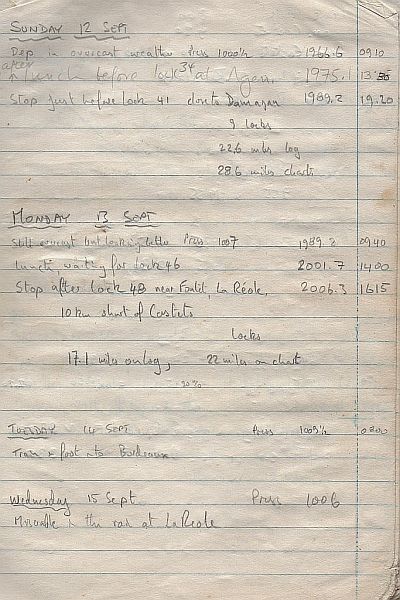 SUNDAY 12 SEPT
Dep in overcast weather Press 1000½ 1966.6 0910
after
Lunch before lock 34 at Agen, 1975.1 13
Stop just before lock 41 close to Damazan 1989.2 19.20
9 locks
22.6 miles log
28.6 miles chart
MONDAY 13 SEPT
Still overcast but looking better Press 1007 1989.2 0940
Lunch, waiting for lock 46 2001.7 1400
Stop after lock 48 near La Réole. 2006.3 1615
10 km short of Castets
Locks
17.1 miles on log, 22 miles on chart
20%
TUESDAY 14 SEPT Press 1009½
Train & foot into Bordeaux
Wednesday 15 Sept Press 1006
Miserable in the rain at La Reole